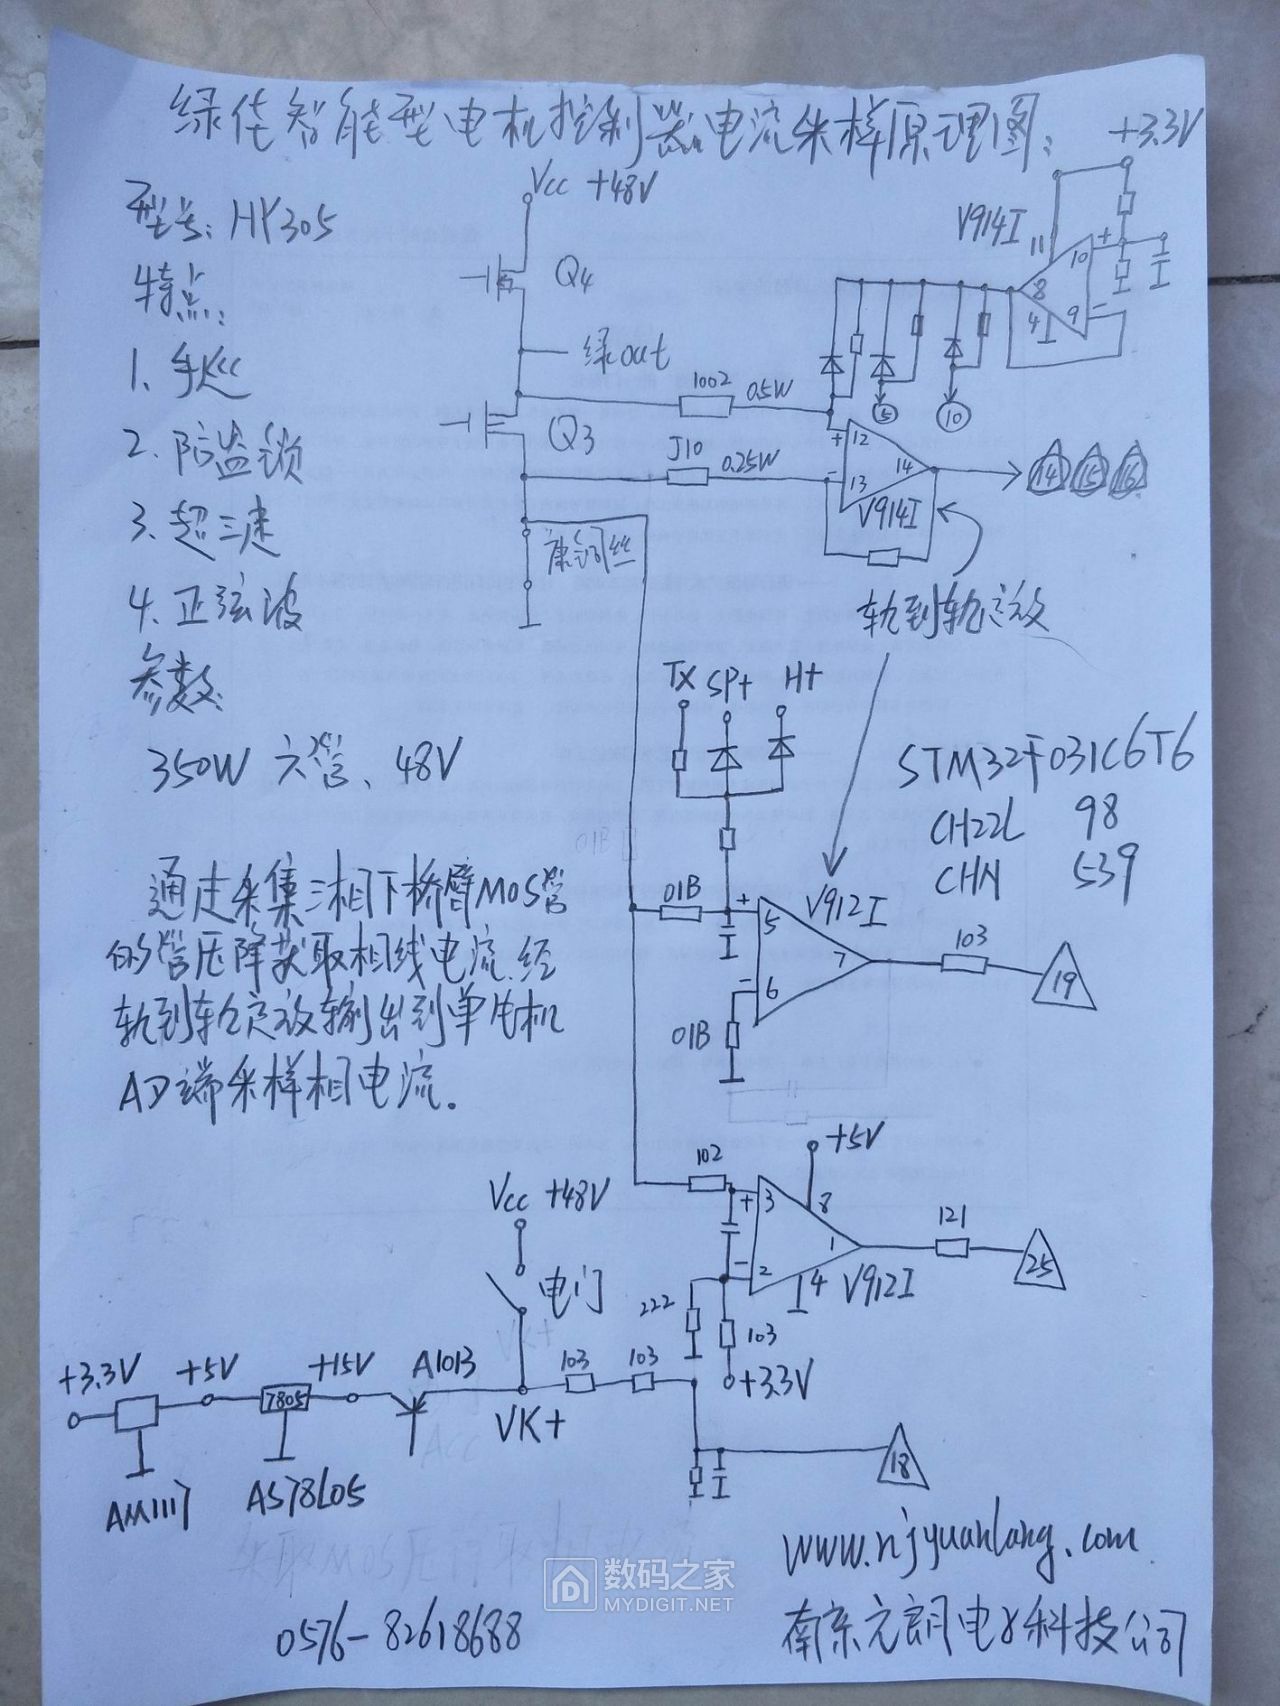 绿佳智能型电机控制器电流采样原理图:
+3.3V
Vcc +48V
型号: HY305
V914I
11
+ 10
8
4
9 -
特点:
Q4
绿out
1.
1002
0.5W
5
10
Q3
+ 12
2. 防盗锁
J10
0.25W
14
- 13
14 15 16
V914I
3. 超三速
康铜丝
4. 正弦波
轨到轨运放
参数:
TX SP+ H+
350W 六管、48V
STM32F031C6T6
CH22L 98
CHN 539
通过采集三相下桥臂MOS管
的管压降获取相线电流.经
轨到轨运放输出到单片机
AD端采样相电流.
01B
+ 5
V912I
7
103
19
- 6
01B
+5V
102
Vcc +48V
+ 3
8
1
121
25
- 2
4 V912I
电门
222
103
+3.3V
+3.3V +5V +15V A1013
103 103
7805
VK+
18
AM1117 AS78L05
www.njyuanlang.com
数码之家
MYDIGIT.NET
0576-82618688
南京元朗电子科技公司